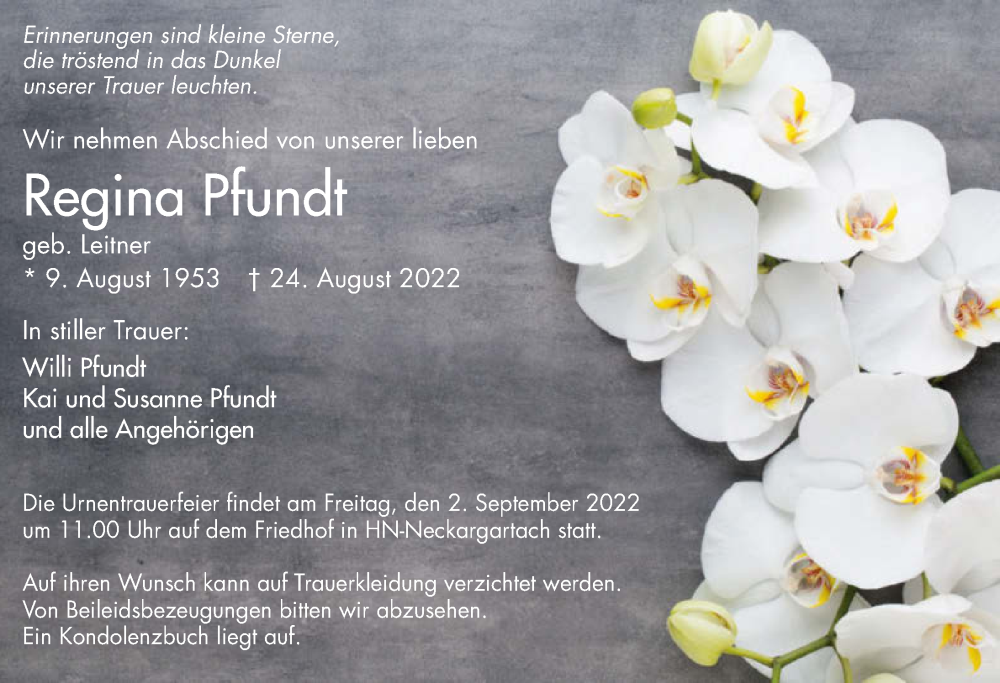 Erinnerungen sind kleine Sterne,
die tröstend in das Dunkel
unserer Trauer leuchten.
Wir nehmen Abschied von unserer lieben
Regina Pfundt
geb. Leitner
* 9. August 1953 † 24. August 2022
In stiller Trauer:
Willi Pfundt
Kai und Susanne Pfundt
und alle Angehörigen
Die Urnentrauerfeier findet am Freitag, den 2. September 2022
um 11.00 Uhr auf dem Friedhof in HN-Neckargartach statt.
Auf ihren Wunsch kann auf Trauerkleidung verzichtet werden.
Von Beileidsbezeugungen bitten wir abzusehen.
Ein Kondolenzbuch liegt auf.